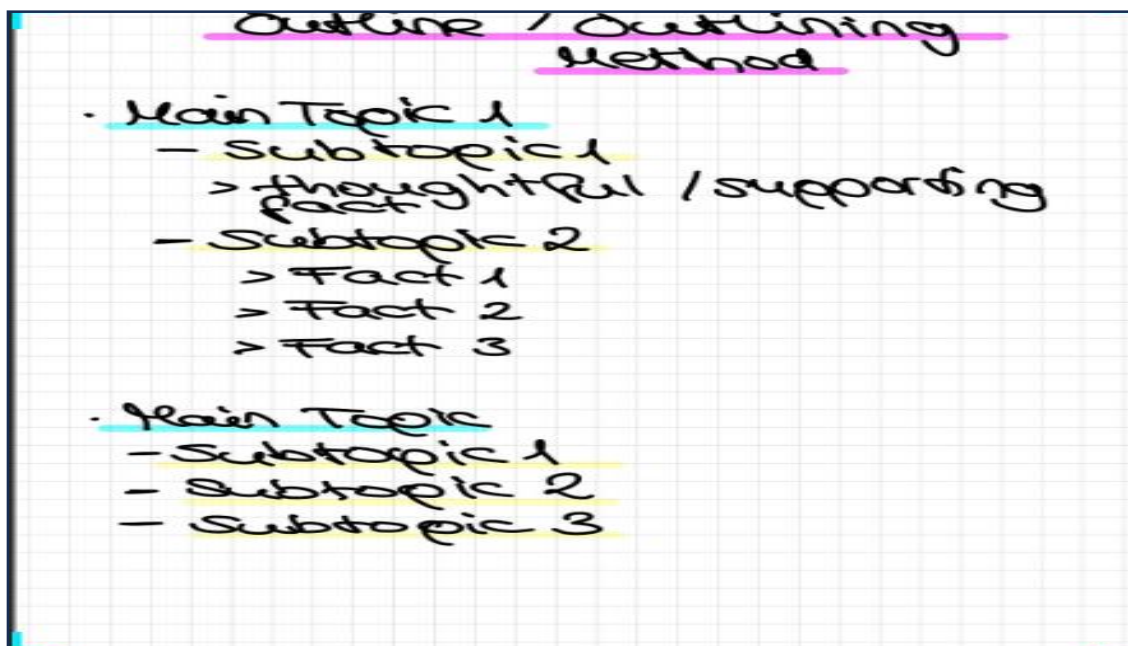 Outline / Outlining
Method
· Main Topic 1
- Subtopic 1
> thoughtful / supporting
fact
- Subtopic 2
> Fact 1
> Fact 2
> Fact 3
· Main Topic
- Subtopic 1
- Subtopic 2
- Subtopic 3